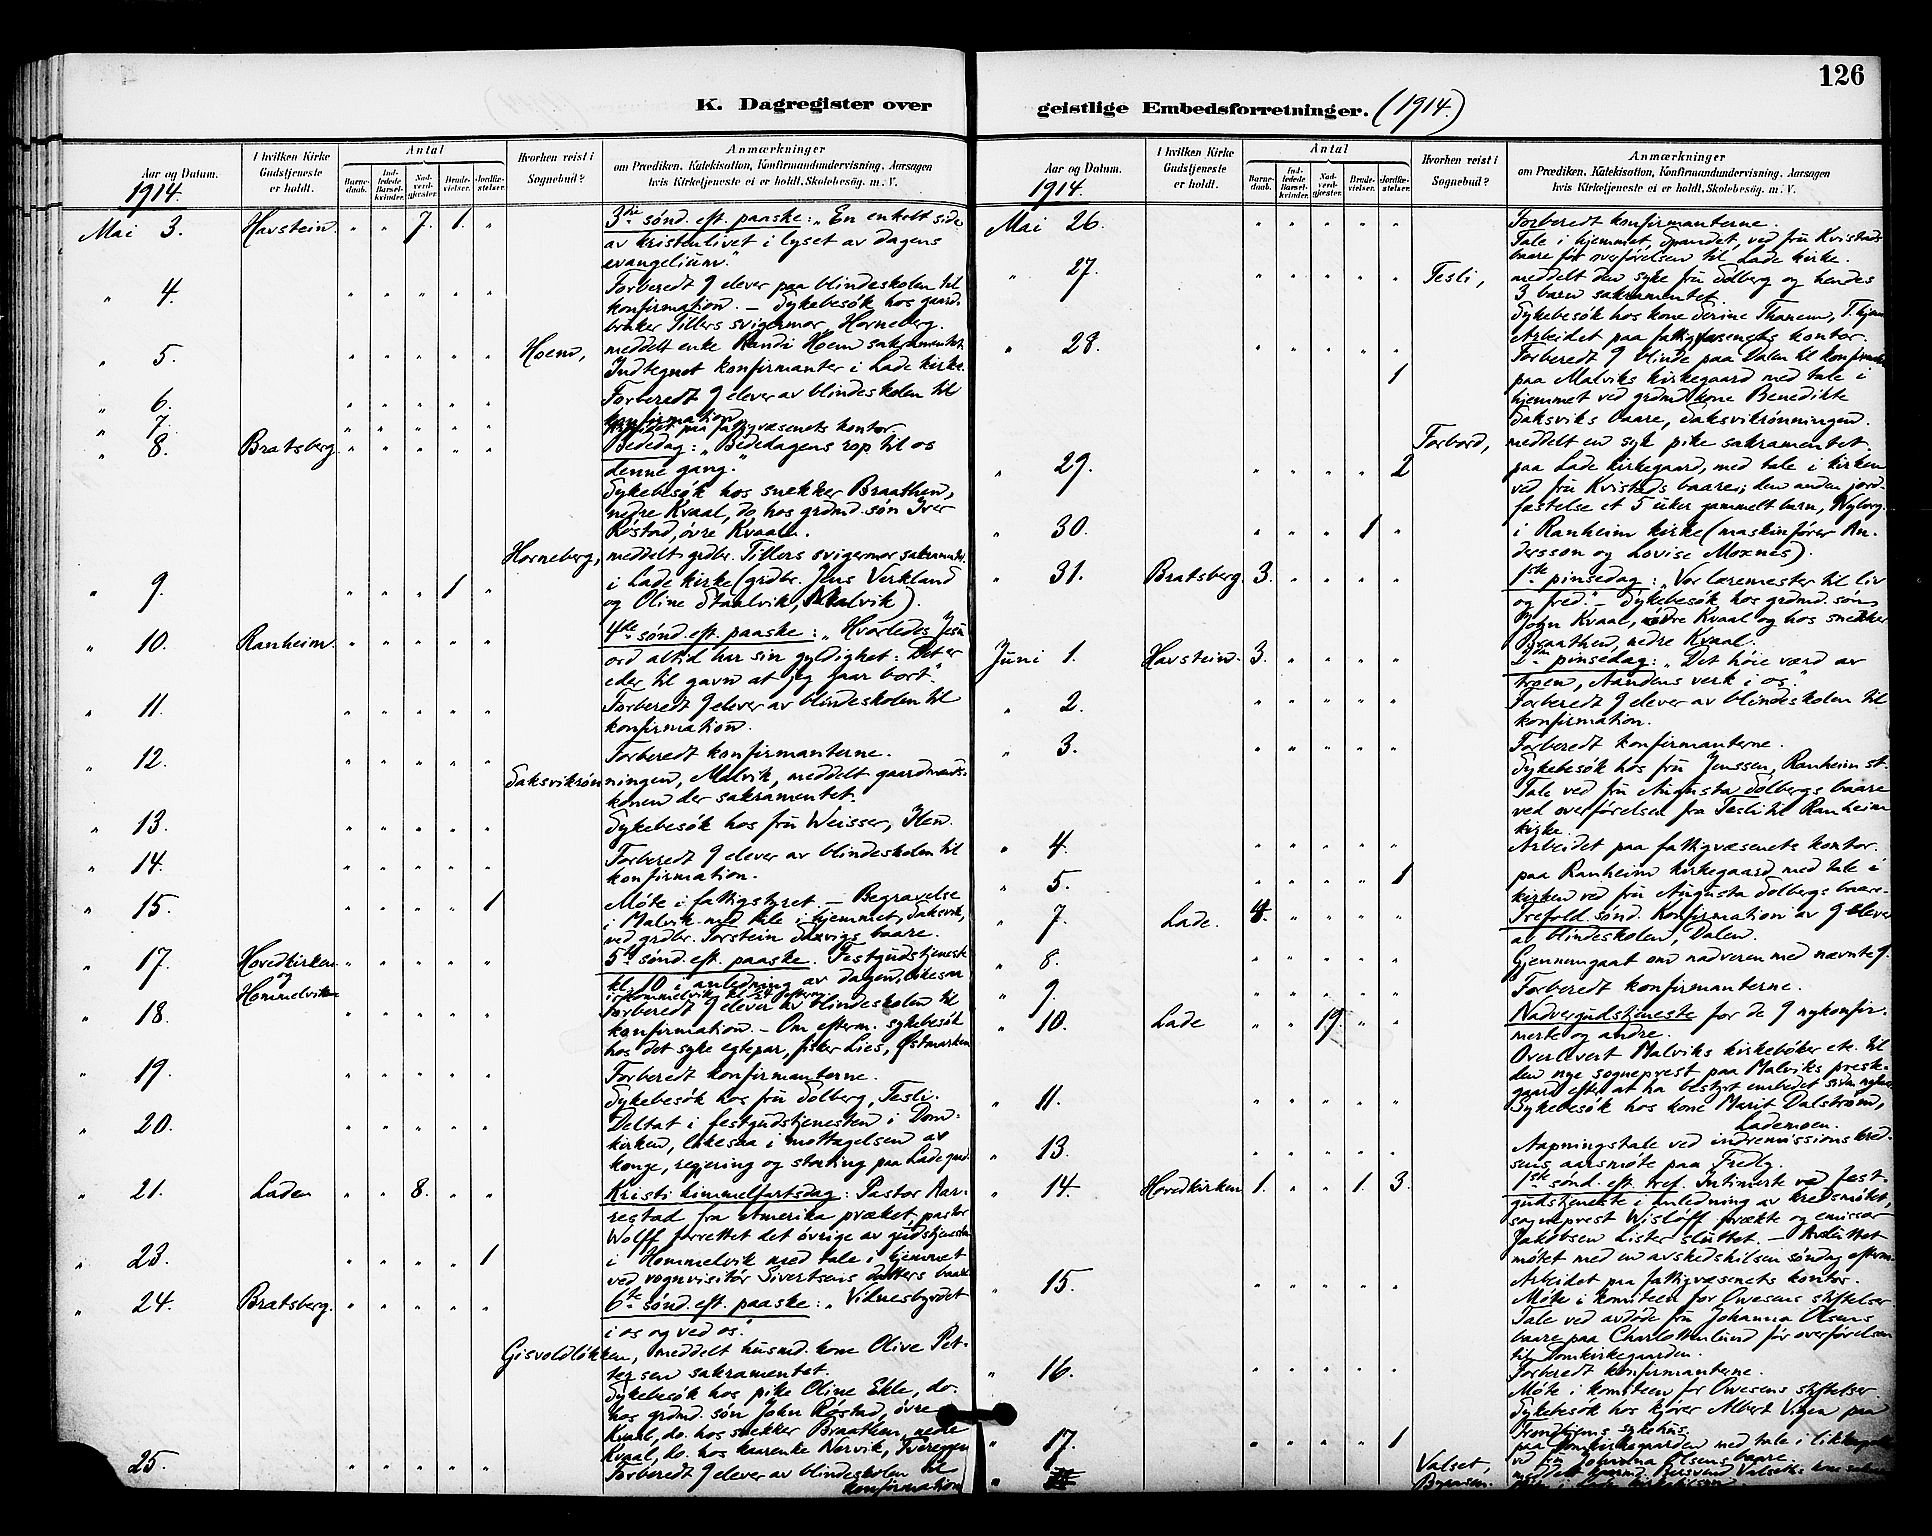 126
K. Dagregister over
Aar og Datum.
I hvilken Kirke Gudstjeneste er holdt.
Antal
Barnedaab.
Indledede Barselkvinder.
Nadverdgjester.
Brudevielser.
Jordfæstelser.
Hvorhen reist i Sognebud?
Anmærkninger
om Prædiken, Katekisation, Konfirmandundervisning, Aarsagen
hvis Kirketjeneste ei er holdt, Skolebesøg. m. V.
1914.
Mai 3. Havstein. " " 7. 1. " 3die sønd. eft. paaske: "En enkelt side
av kristenlivet i lyset av dagens
evangelium."
" 4. " " " " " Forberedt 9 elever paa blindeskolen til
konfirmation. – Sykebesøk hos gaard-
bruker Tillers svigermor, Horneberg.
" 5. " " " " " Hoem, meddelt enke Randi Hoem sakramentet.
Indtegnet konfirmanter i Lade kirke.
" 6. " " " " " Forberedt 9 elever av blindeskolen til
konfirmation
" 7. " " " " " Arbeidet paa fattigvæsenets kontor.
" 8. Bratsberg. " " " " " Bededag: "Bededagens rop til os
denne gang."
Sykebesøk hos snekker Braathen,
nedre Kvaal, do hos grdmd. søn Iver
Røstad, øvre Kvaal.
Horneberg, meddelt grdbr. Tillers svigermor sakramentet.
" 9. " " " 1 " i Lade kirke (grdbr. Jens Verkland
og Oline Staalvik, Malvik).
" 10. Ranheim. " " " " " 4de sønd. eft. paaske: "Hvorledes Jesu
ord altid har sin gyldighet: Det er
eder til gavn at jeg gaar bort."
" 11. " " " " " Forberedt 9 elever av blindeskolen til
konfirmation.
" 12. " " " " " Forberedt konfirmanterne.
Saksvikrønningen, Malvik, meddelt gaardmands-
konen der sakramentet.
" 13. " " " " " Sykebesøk hos fru Weisser, Ilen.
" 14. " " " " " Forberedt 9 elever av blindeskolen til
konfirmation.
" 15. " " " " 1 Møte i fattigstyret. – Begravelse
i Malvik med tale i hjemmet, Saksvik,
ved grdbr. Torstein Saxvigs baare.
" 17. Hovedkirken og Hommelviken " " " " " 5te sønd. eft. paaske. Festgudstjeneste
kl. 10 i anledning av dagen, likesaa
i Hommelvik kl. 3½ efterm.
" 18. " " " " " Forberedt 9 elever av blindeskolen til
konfirmation. – Om efterm. sykebesøk
hos det syke egtepar, fisker Lies, Østmarken
" 19. " " " " " Forberedt konfirmanterne.
Sykebesøk hos fru Solberg, Tesli.
" 20. " " " " " Deltat i festgudstjenesten i Dom-
kirken, likesaa i mottagelsen av
konge, regjering og storting paa Ladegaard.
" 21. Laden " " 8. " " Kristi himmelfartsdag: Pastor Aar-
restad fra Amerika præket, pastor
Wolff forrettet det øvrige av gudstjenesten
" 23. " " " " 1 i Hommelvik med tale i hjemmet
ved vognvisitør Sivertsens datters baare
" 24. Bratsberg. " " " " " 6te sønd. eft. paaske: "Vidnesbyrdet
i os og ved os."
Gisvoldløkken, meddelt husmd. kone Olive Pet-
tersen sakramentet.
Sykebesøk hos pike Oline Ekle, do.
hos grdmd. søn John Røstad, øvre
Kvaal, do. hos snekker Braathen, nedre
Kvaal, do. hos kaarenke Nervik, Tvereggen
25. " " " " " Forberedt 9 elever av blindeskolen til
konfirmation
geistlige Embedsforretninger. (1914.)
Aar og Datum.
I hvilken Kirke Gudstjeneste er holdt.
Antal
Barnedaab.
Indledede Barselkvinder.
Nadverdgjester.
Brudevielser.
Jordfæstelser.
Hvorhen reist i Sognebud?
Anmærkninger
om Prædiken, Katekisation, Konfirmandundervisning, Aarsagen
hvis Kirketjeneste ei er holdt, Skolebesøg. m. V.
1914.
Mai 26. " " " " " Forberedt konfirmanterne.
Tale i hjemmet, Spandet, ved fru Kvistads
baare før overførelsen til Lade kirke.
" 27. " " " " " Tesli, meddelt den syke fru Solberg og hendes
3 barn sakramentet.
Sykebesøk hos kone Serine Thanem,
" 28. " " " " " Arbeidet paa fattigvæsenets kontor.
Forberedt 9 blinde paa Dalen til konfirmation
1 paa Malviks kirkegaard med tale i
hjemmet ved grdmd. kone Benedikte
Saksviks baare, Saksvikrønningen.
Forbord, meddelt en syk pike sakramentet.
" 29. " " " " 2 paa Lade kirkegaard, med tale i kirken
ved fru Kvistads baare; den anden jord-
festelse et 5 uker gammelt barn, Nyborg.
" 30. " " " 1 " i Ranheim kirke (maskinfører An-
dersson og Lovise Moxnes).
" 31. Bratsberg. 3. " " " " 1ste pinsedag: "Vor læremester til liv
og fred." – Sykebesøk hos grdmd. søn
John Kvaal, nedre Kvaal og hos snekker
Braathen, nedre Kvaal.
Juni 1. Havstein. 3. " " " " 2den pinsedag: "Det høie værd av
troen, Aandens verk i os."
" 2. " " " " " Forberedt 9 elever av blindeskolen til
konfirmation.
" 3. " " " " " Forberedt konfirmanterne.
Sykebesøk hos fru Jenssen, Ranheim st.
Tale ved fru Augusta Solbergs baare
ved overførelsen fra Tesli til Ranheim
kirke.
" 4. " " " " " Arbeidet paa fattigvæsenets kontor.
" 5. " " " " 1 paa Ranheim kirkegaard med tale i
kirken ved fru Augusta Solbergs baare.
" 7. Lade. 4. " " " " Trefold. sønd. Konfirmation av 9 elever
av blindeskolen, Dalen.
" 8. " " " " " Gjennemgaat om nadveren med nævnte 9.
" 9. " " " " " Forberedt konfirmanterne.
" 10. Lade " " 19. " " Nadvergudstjeneste for de 9 nykonfir-
merte og andre.
Overlevert Malviks kirkebøker etc. til
den nye sogneprest paa Malviks preste-
gaard efter at ha bestyrt embedet siden
" 11. " " " " " Sykebesøk hos kone Marit Dalstrøm,
Lademoen.
" 13. " " " " " Aapningstale ved indremissionskred-
sens aarsmøte paa Fredly.
" 14. Hovedkirken 1. " " 1. 3. 1ste sønd. eft. tref. Intimerte ved fest-
gudstjeneste i anledning av kredsmøtet,
sogneprest Wisløff prækte og emissær
Jakobsen Lister sluttet. – Avsluttet
møtet med en avskedshilsen søndag efterm.
" 15. " " " " " Arbeidet paa fattigvæsenets kontor.
Møte i komiteen for Owesens stiftelser.
Tale ved avdøde fru Johanna Olsens
baare paa Charlottenlund før overførelsen
til Domkirkegaarden.
" 16. " " " " " Forberedt konfirmanterne.
Møte i komiteen for Owesens stiftelser.
Sykebesøk hos kjører Albert Vigen paa
Trondhjems sykehus.
" 17. " " " " 1 paa Domkirkegaarden med tale i
ved fru Johanna Olsens baare.
Valset, Bynesset.